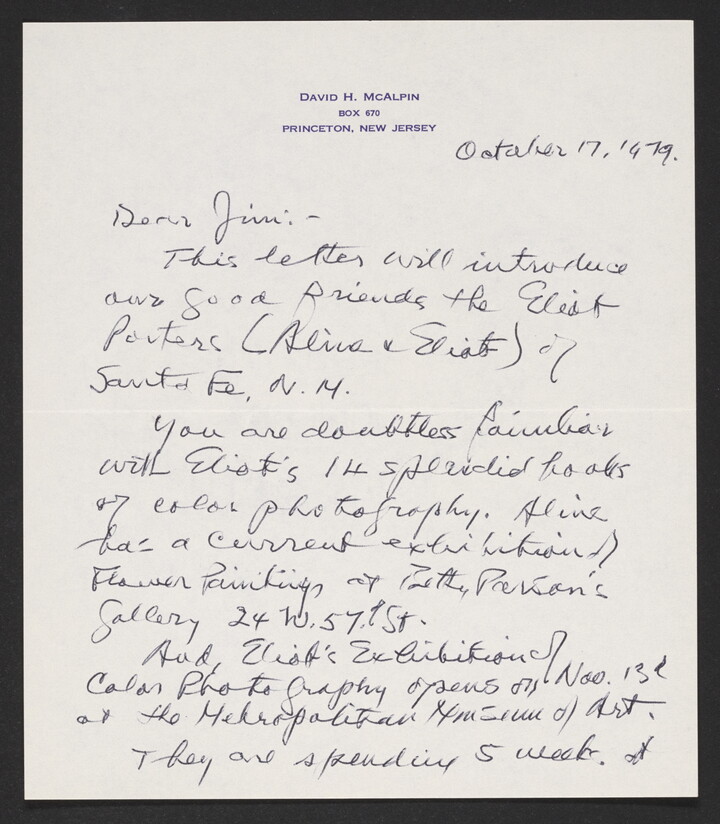 DAVID H. MCALPIN
BOX 670
PRINCETON, NEW JERSEY
October 17, 1979.
Dear Jim:-
This letter will introduce
our good friends the Eliot
Porters (Aline & Eliot) of
Santa Fe, N.M.
You are doubtless familiar
with Eliot's 14 splendid books
of color photography. Aline
has a current exhibition of
Flower Paintings at Betty Parson's
Gallery 24 W. 57th St.
And, Eliot's Exhibition of
Color Photography opens on Nov. 13th
at the Metropolitan Museum of Art.
They are spending 5 weeks at